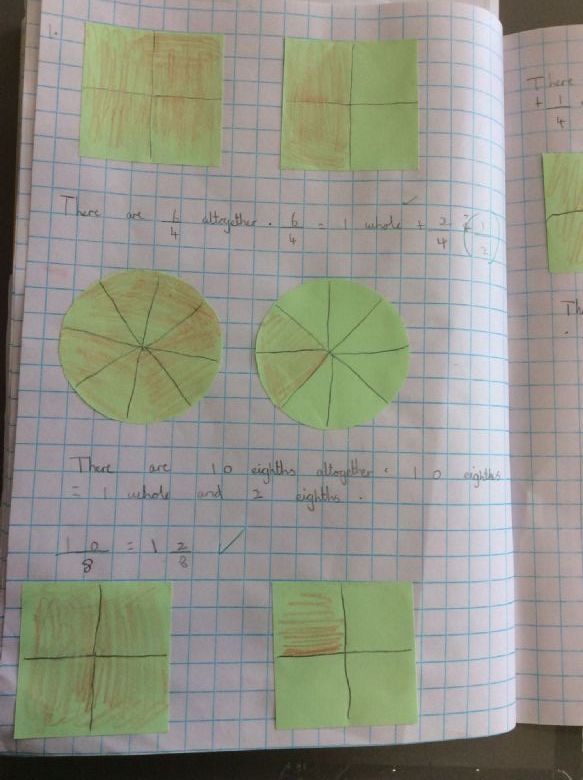 1.
There are 6/4 altogether. 6/4 = 1 whole + 2/4 (1/2)
There are 10 eighths altogether. 10 eighths
= 1 whole and 2 eighths.
10/8 = 1 2/8 ✓
There
+ 1/4
Th